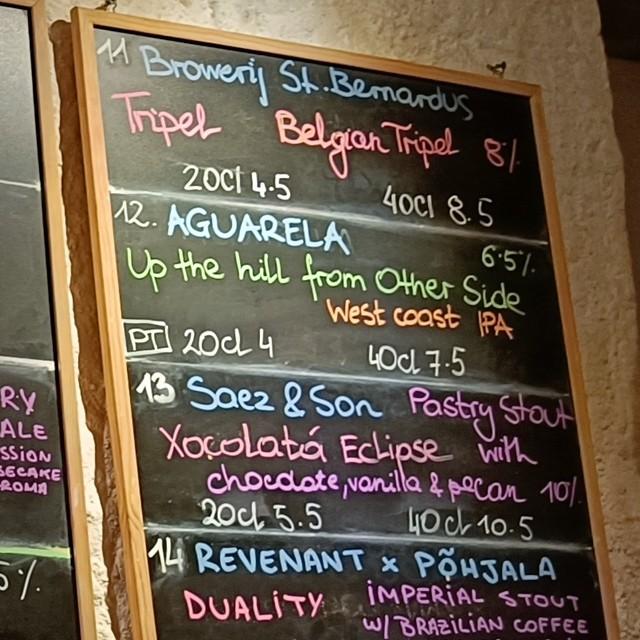 RY
ALE
SSION
SECAKE
ROMA
5%
11 Browerij St.Bernardus
Tripel Belgian Tripel 8%
20cl 4.5 40cl 8.5
12. AGUARELA 6.5%
Up the hill from Other Side
West coast IPA
PT 20cl 4 40cl 7.5
13 Saez & Son Pastry Stout
Xocolatá Eclipse with
chocolate, vanilla & pecan 10%
20cl 5.5 40cl 10.5
14 REVENANT x PÕHJALA
DUALITY IMPERIAL STOUT
W/ BRAZILIAN COFFEE